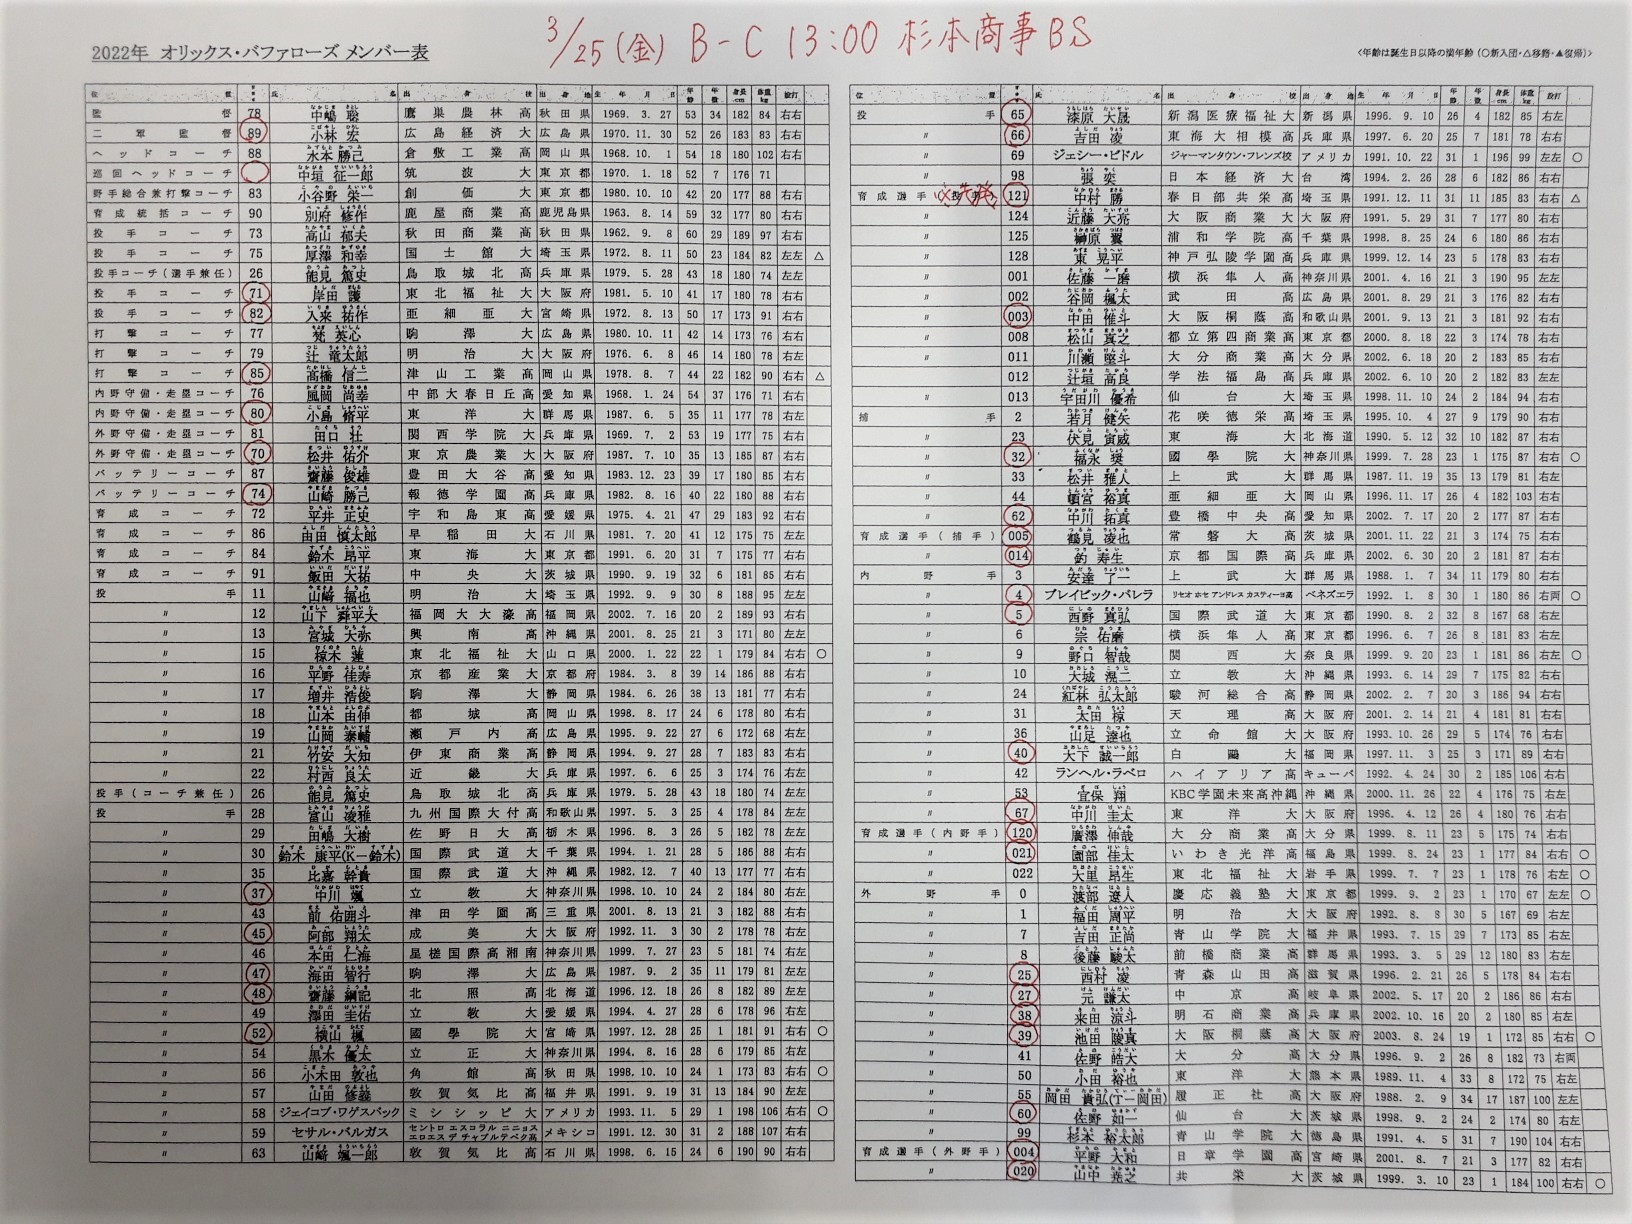 3/25(金) B-C 13:00 杉本商事BS
2022年 オリックス・バファローズ メンバー表
<年齢は誕生日以降の満年齢(○新入団・△移籍・▲復帰)>
位置 氏名 出身校 出身地 生年月日 年齢 年数 身長cm 体重kg 投打
監督 78 中嶋 聡 鷹巣農林高 秋田県 1969. 3. 27 53 34 182 84 右右
二軍監督 89 小林 宏 広島経済大 広島県 1970. 11. 30 52 26 183 83 右右
ヘッドコーチ 88 水本 勝己 倉敷工業高 岡山県 1968. 10. 1 54 18 180 102 右右
巡回ヘッドコーチ 中垣 征一郎 筑波大 東京都 1970. 1. 18 52 7 176 71
野手総合兼打撃コーチ 83 小谷野 栄一 創価大 東京都 1980. 10. 10 42 20 177 88 右右
育成統括コーチ 90 別府 修作 鹿屋商業高 鹿児島県 1963. 8. 14 59 32 177 80 右右
投手コーチ 73 高山 郁夫 秋田商業高 秋田県 1962. 9. 8 60 29 189 97 右右
投手コーチ 75 厚澤 和幸 国士舘大 埼玉県 1972. 8. 11 50 23 184 82 左左 △
投手コーチ(選手兼任) 26 能見 篤史 鳥取城北高 兵庫県 1979. 5. 28 43 18 180 74 左左
投手コーチ 71 岸田 護 東北福祉大 大阪府 1981. 5. 10 41 17 180 78 右右
投手コーチ 82 入来 祐作 亜細亜大 宮崎県 1972. 8. 13 50 17 173 91 右右
打撃コーチ 77 梵 英心 駒澤大 広島県 1980. 10. 11 42 14 173 76 右右
打撃コーチ 79 辻 竜太郎 明治大 大阪府 1976. 6. 8 46 14 180 78 右左
打撃コーチ 85 高橋 信二 津山工業高 岡山県 1978. 8. 7 44 22 182 90 右右 △
内野守備・走塁コーチ 76 風岡 尚幸 中部大春日丘高 愛知県 1968. 1. 24 54 37 176 71 右右
内野守備・走塁コーチ 80 小島 脩平 東洋大 群馬県 1987. 6. 5 35 11 177 78 右左
外野守備・走塁コーチ 81 田口 壮 関西学院大 兵庫県 1969. 7. 2 53 19 177 75 右右
外野守備・走塁コーチ 70 松井 佑介 東京農業大 大阪府 1987. 7. 10 35 13 185 87 右右
バッテリーコーチ 87 齋藤 俊雄 豊田大谷高 愛知県 1983. 12. 23 39 17 180 85 右右
バッテリーコーチ 74 山崎 勝己 報徳学園高 兵庫県 1982. 8. 16 40 22 180 88 右右
育成コーチ 72 平井 正史 宇和島東高 愛媛県 1975. 4. 21 47 29 183 92 右右
育成コーチ 86 由田 慎太郎 早稲田大 石川県 1981. 7. 20 41 12 175 75 左左
育成コーチ 84 鈴木 昂平 東海大 東京都 1991. 6. 20 31 7 175 77 右右
育成コーチ 91 飯田 大祐 中央大 茨城県 1990. 9. 19 32 6 181 85 右右
投手 11 山﨑 福也 明治大 埼玉県 1992. 9. 9 30 8 188 95 左左
〃 12 山下 舜平大 福岡大大濠高 福岡県 2002. 7. 16 20 2 189 93 右右
〃 13 宮城 大弥 興南高 沖縄県 2001. 8. 25 21 3 171 80 左左
〃 15 椋木 蓮 東北福祉大 山口県 2000. 1. 22 22 1 179 84 右右 ○
〃 16 平野 佳寿 京都産業大 京都府 1984. 3. 8 39 14 186 88 右右
〃 17 増井 浩俊 駒澤大 静岡県 1984. 6. 26 38 13 181 77 右右
〃 18 山本 由伸 都城高 岡山県 1998. 8. 17 24 6 178 80 右右
〃 19 山岡 泰輔 瀬戸内高 広島県 1995. 9. 22 27 6 172 68 右左
〃 21 竹安 大知 伊東商業高 静岡県 1994. 9. 27 28 7 183 83 右右
〃 22 村西 良太 近畿大 兵庫県 1997. 6. 6 25 3 174 76 右左
投手(コーチ兼任) 26 能見 篤史 鳥取城北高 兵庫県 1979. 5. 28 43 18 180 74 左左
投手 28 富山 凌雅 九州国際大付高 和歌山県 1997. 5. 3 25 4 178 84 左左
〃 29 田嶋 大樹 佐野日大高 栃木県 1996. 8. 3 26 5 182 78 左左
〃 30 鈴木 康平(K-鈴木) 国際武道大 千葉県 1994. 1. 21 28 5 186 88 右右
〃 35 比嘉 幹貴 国際武道大 沖縄県 1982. 12. 7 40 13 177 77 右右
〃 37 中川 颯 立教大 神奈川県 1998. 10. 10 24 2 184 80 右左
〃 43 前 佑囲斗 津田学園高 三重県 2001. 8. 13 21 3 182 88 右右
〃 45 阿部 翔太 成美大 大阪府 1992. 11. 3 30 2 178 78 右左
〃 46 本田 仁海 星槎国際高湘南 神奈川県 1999. 7. 27 23 5 181 74 右左
〃 47 海田 智行 駒澤大 広島県 1987. 9. 2 35 11 179 81 左左
〃 48 齋藤 綱記 北照高 北海道 1996. 12. 18 26 8 182 89 左左
〃 49 澤田 圭佑 立教大 愛媛県 1994. 4. 27 28 6 178 96 右左
〃 52 横山 楓 國學院大 宮崎県 1997. 12. 28 25 1 181 91 右右 ○
〃 54 黒木 優太 立正大 神奈川県 1994. 8. 16 28 6 179 85 右左
〃 56 小木田 敦也 角館高 秋田県 1998. 10. 10 24 1 173 83 右右 ○
〃 57 山田 修義 敦賀気比高 福井県 1991. 9. 19 31 13 184 90 左左
〃 58 ジェイコブ・ワゲスパック ミシシッピ大 アメリカ 1993. 11. 5 29 1 198 106 右右 ○
〃 59 セサル・バルガス セントロ エスコラル ニニョス エロエス デ チャプルテペク高 メキシコ 1991. 12. 30 31 2 188 107 右右
〃 63 山﨑 颯一郎 敦賀気比高 石川県 1998. 6. 15 24 6 190 90 右右
位置 氏名 出身校 出身地 生年月日 年齢 年数 身長cm 体重kg 投打
投手 65 漆原 大晟 新潟医療福祉大 新潟県 1996. 9. 10 26 4 182 85 右左
〃 66 吉田 凌 東海大相模高 兵庫県 1997. 6. 20 25 7 181 78 右右
〃 69 ジェシー・ビドル ジャーマンタウン・フレンズ校 アメリカ 1991. 10. 22 31 1 196 99 左左 ○
〃 98 張 奕 日本経済大 台湾 1994. 2. 26 28 6 182 86 右右
育成選手(投手) 121 中村 勝 春日部共栄高 埼玉県 1991. 12. 11 31 11 185 83 右右 △
〃 124 近藤 大亮 大阪商業大 大阪府 1991. 5. 29 31 7 177 80 右右
〃 125 榊原 翼 浦和学院高 千葉県 1998. 8. 25 24 6 180 86 右右
〃 128 東 晃平 神戸弘陵学園高 兵庫県 1999. 12. 14 23 5 178 83 右右
〃 001 佐藤 一磨 横浜隼人高 神奈川県 2001. 4. 16 21 3 190 95 左左
〃 002 谷岡 楓太 武田高 広島県 2001. 8. 29 21 3 176 82 右右
〃 003 中田 惟斗 大阪桐蔭高 和歌山県 2001. 9. 13 21 3 181 92 右右
〃 008 松山 真之 都立第四商業高 東京都 2000. 8. 18 22 3 174 78 右右
〃 011 川瀬 堅斗 大分商業高 大分県 2002. 6. 18 20 2 183 85 右右
〃 012 辻垣 高良 学法福島高 兵庫県 2002. 6. 10 20 2 182 83 左左
〃 013 宇田川 優希 仙台大 埼玉県 1998. 11. 10 24 2 184 94 右右
捕手 2 若月 健矢 花咲徳栄高 埼玉県 1995. 10. 4 27 9 179 90 右右
〃 23 伏見 寅威 東海大 北海道 1990. 5. 12 32 10 182 87 右右
〃 32 福永 奨 國學院大 神奈川県 1999. 7. 28 23 1 175 87 右右 ○
〃 33 松井 雅人 上武大 群馬県 1987. 11. 19 35 13 179 81 右左
〃 44 頓宮 裕真 亜細亜大 岡山県 1996. 11. 17 26 4 182 103 右右
〃 62 中川 拓真 豊橋中央高 愛知県 2002. 7. 17 20 2 177 87 右右
育成選手(捕手) 005 鶴見 凌也 常磐大高 茨城県 2001. 11. 22 21 3 174 75 右右
〃 014 釣 寿生 京都国際高 兵庫県 2002. 6. 30 20 2 181 87 右右
内野手 3 安達 了一 上武大 群馬県 1988. 1. 7 34 11 179 80 右右
〃 4 ブレイビック・バレラ リセオ ホセ アンドレス カスティーヨ高 ベネズエラ 1992. 1. 8 30 1 180 86 右両 ○
〃 5 西野 真弘 国際武道大 東京都 1990. 8. 2 32 8 167 68 右左
〃 6 宗 佑磨 横浜隼人高 東京都 1996. 6. 7 26 8 181 83 右左
〃 9 野口 智哉 関西大 奈良県 1999. 9. 20 23 1 181 86 右左 ○
〃 10 大城 滉二 立教大 沖縄県 1993. 6. 14 29 7 175 82 右右
〃 24 紅林 弘太郎 駿河総合高 静岡県 2002. 2. 7 20 3 186 94 右右
〃 31 太田 椋 天理高 大阪府 2001. 2. 14 21 4 181 81 右右
〃 36 山足 達也 立命館大 大阪府 1993. 10. 26 29 5 174 76 右右
〃 40 大下 誠一郎 白鷗大 福岡県 1997. 11. 3 25 3 171 89 右右
〃 42 ランヘル・ラベロ ハイアリア高 キューバ 1992. 4. 24 30 2 185 106 右右
〃 53 宜保 翔 KBC学園未来高沖縄 沖縄県 2000. 11. 26 22 4 176 75 右左
〃 67 中川 圭太 東洋大 大阪府 1996. 4. 12 26 4 180 76 右右
育成選手(内野手) 120 廣澤 伸哉 大分商業高 大分県 1999. 8. 11 23 5 175 74 右右
〃 021 園部 佳太 いわき光洋高 福島県 1999. 8. 24 23 1 177 84 右右 ○
〃 022 大里 昂生 東北福祉大 岩手県 1999. 7. 7 23 1 178 76 右左 ○
外野手 0 渡部 遼人 慶応義塾大 東京都 1999. 9. 2 23 1 170 67 左左 ○
〃 1 福田 周平 明治大 大阪府 1992. 8. 8 30 5 167 69 右左
〃 7 吉田 正尚 青山学院大 福井県 1993. 7. 15 29 7 173 85 右左
〃 8 後藤 駿太 前橋商業高 群馬県 1993. 3. 5 29 12 180 83 右左
〃 25 西村 凌 青森山田高 滋賀県 1996. 2. 21 26 5 178 84 右右
〃 27 元 謙太 中京高 岐阜県 2002. 5. 17 20 2 186 86 右右
〃 38 来田 涼斗 明石商業高 兵庫県 2002. 10. 16 20 2 180 85 右左
〃 39 池田 陵真 大阪桐蔭高 大阪府 2003. 8. 24 19 1 172 85 右右 ○
〃 41 佐野 皓大 大分高 大分県 1996. 9. 2 26 8 182 73 右両
〃 50 小田 裕也 東洋大 熊本県 1989. 11. 4 33 8 172 75 右左
〃 55 岡田 貴弘(T-岡田) 履正社高 大阪府 1988. 2. 9 34 17 187 100 左左
〃 60 佐野 如一 仙台大 茨城県 1998. 9. 2 24 2 174 80 右左
〃 99 杉本 裕太郎 青山学院大 徳島県 1991. 4. 5 31 7 190 104 右右
育成選手(外野手) 004 平野 大和 日章学園高 宮崎県 2001. 8. 7 21 3 177 82 右右
〃 020 山中 尭之 共栄大 茨城県 1999. 3. 10 23 1 184 100 右右 ○